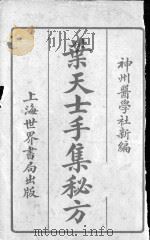 神州醫學社新編
葉天士手集秘方
上海世界書局出版
www.mtoou.info